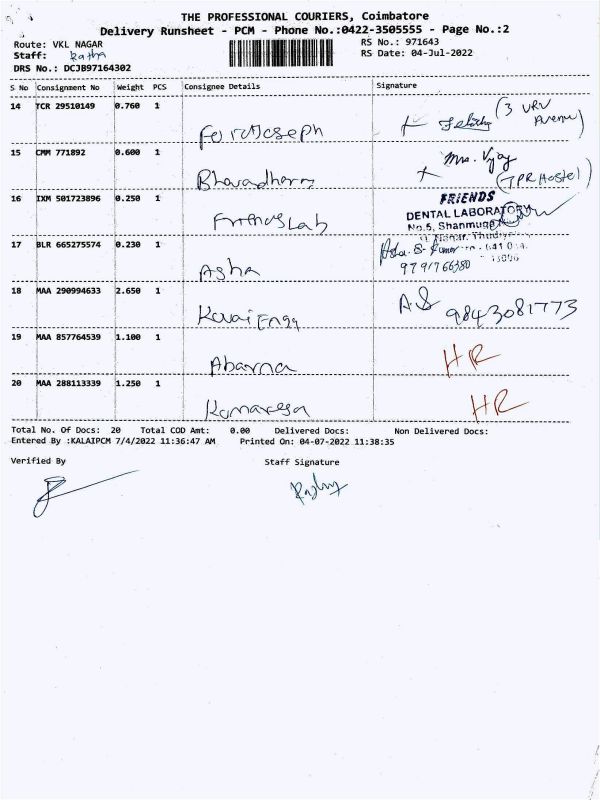 THE PROFESSIONAL COURIERS, Coimbatore
Delivery Runsheet - PCM - Phone No.:0422-3505555 - Page No.:2
Route: VKL NAGAR
RS No.: 971643
Staff: Ratha
RS Date: 04-Jul-2022
DRS No.: DCJB97164302
S No Consignment No Weight PCS Consignee Details Signature
14 TCR 29510149 0.760 1 (3 VRV Avenue)
15 CMM 771892 0.600 1 Bhavadharn Mrs. Vijay
(TPR Hostel)
16 IXM 501723896 0.250 1 Friends Lab FRIENDS
DENTAL LABORATORY
No.5, Shanmuga
17 BLR 665275574 0.230 1 Asha
9791766380
18 MAA 290994633 2.650 1 Kovai Engg A.S 9843081773
19 MAA 857764539 1.100 1 Abarna HR
20 MAA 288113339 1.250 1 Kamaresa HR
Total No. Of Docs: 20 Total COD Amt: 0.00 Delivered Docs: Non Delivered Docs:
Entered By :KALAIPCM 7/4/2022 11:36:47 AM Printed On: 04-07-2022 11:38:35
Verified By Staff Signature